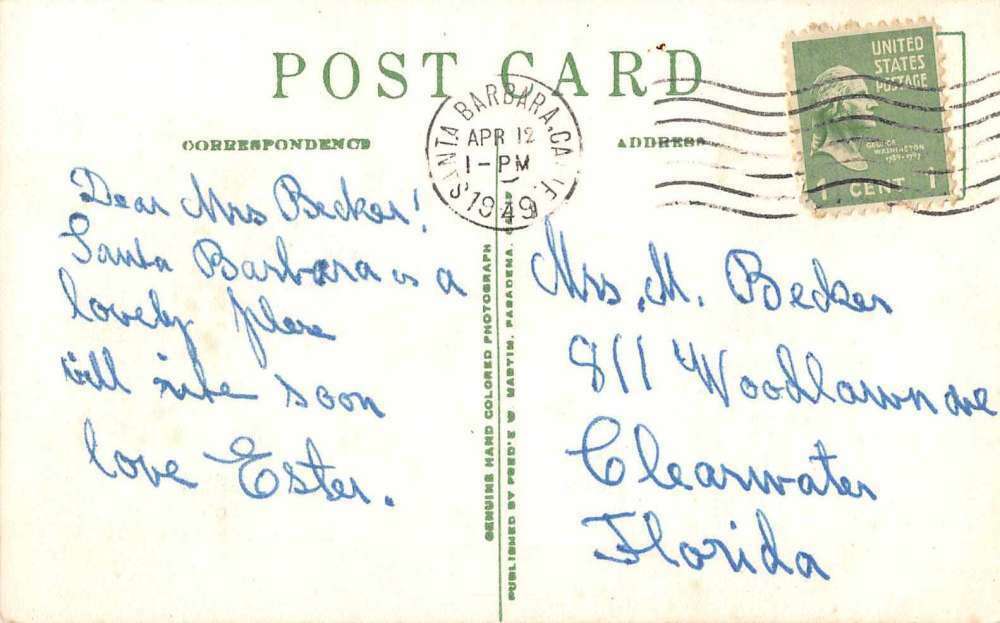 POST CARD
CORRESPONDENCE
ADDRESS
SANTA BARBARA, CALIF.
APR 12
1-PM
1949
UNITED
STATES
POSTAGE
GEORGE
WASHINGTON
1789-1797
1 CENT 1
Dear Mrs Becker!
Santa Barbara is a
lovely place
will write soon
love Ester.
GENUINE HAND COLORED PHOTOGRAPH
PUBLISHED BY FRED'K W MARTIN, PASADENA,
Mrs. M. Becker
811 Woodlawn ave
Clearwater
Florida